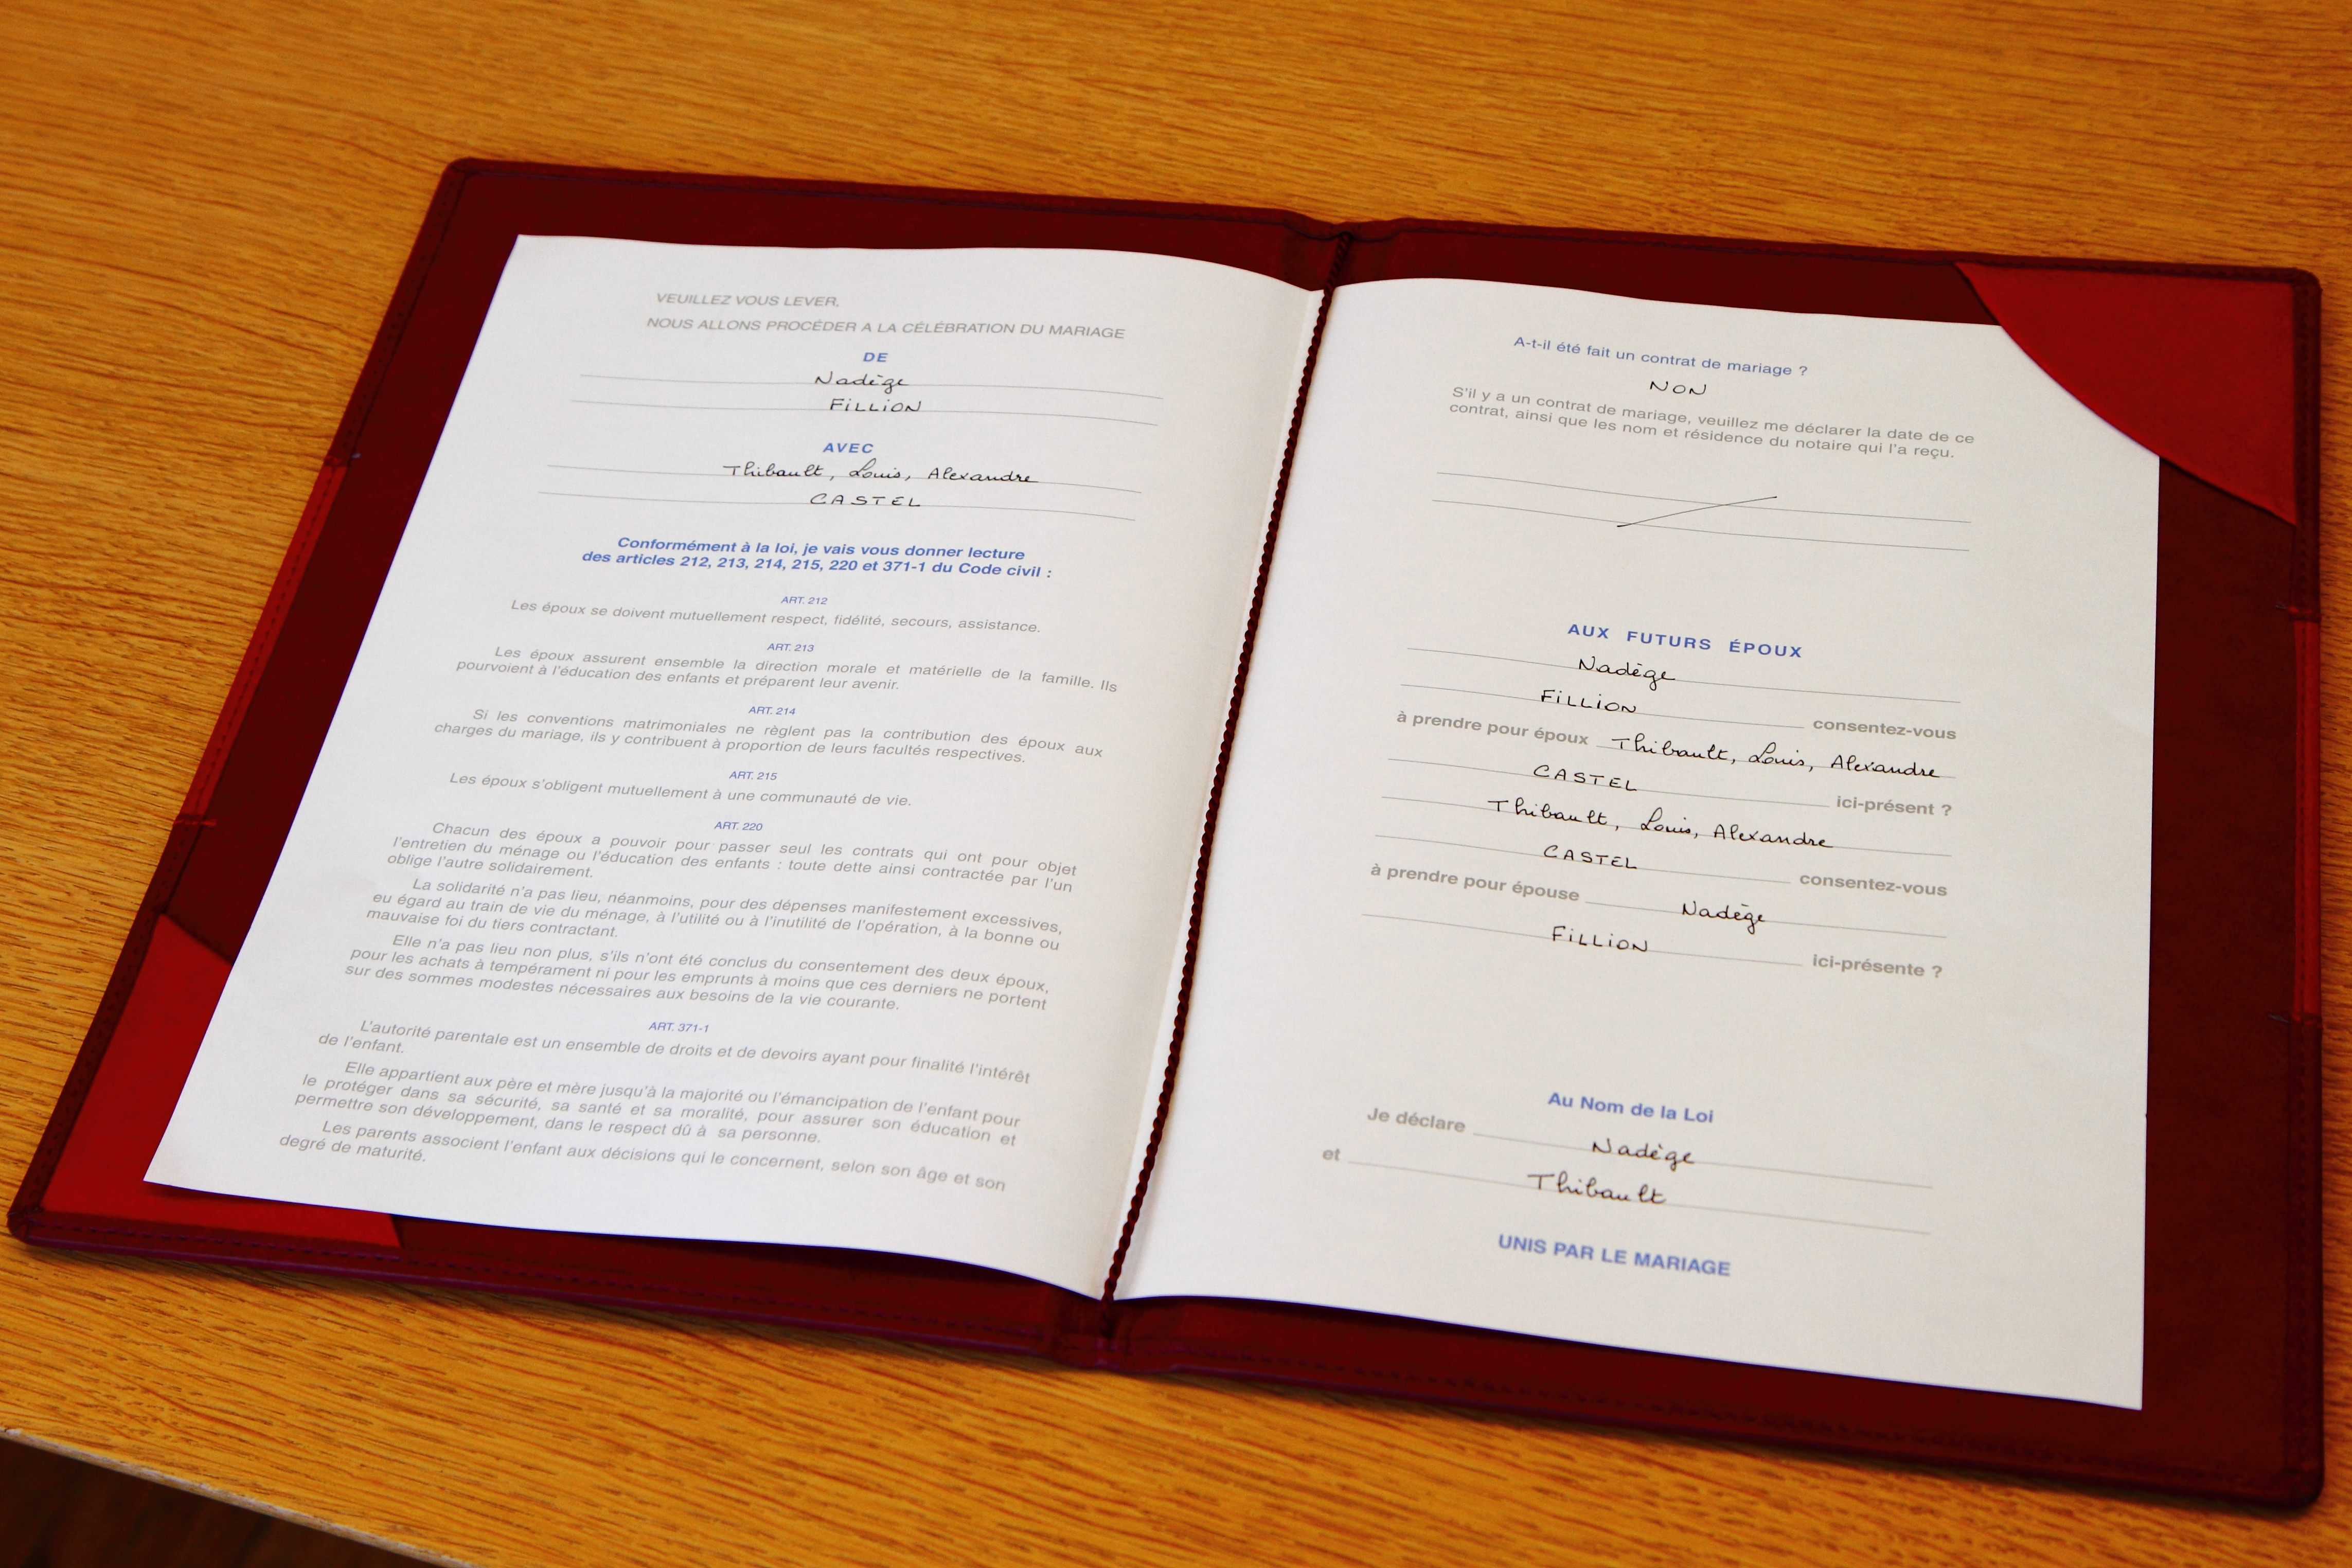 VEUILLEZ VOUS LEVER,
NOUS ALLONS PROCÉDER A LA CÉLÉBRATION DU MARIAGE
DE
Nadège
FiLLiON
AVEC
Thibault, Louis, Alexandre
CASTEL
Conformément à la loi, je vais vous donner lecture
des articles 212, 213, 214, 215, 220 et 371-1 du Code civil :
ART. 212
Les époux se doivent mutuellement respect, fidélité, secours, assistance.
ART. 213
Les époux assurent ensemble la direction morale et matérielle de la famille. Ils
pourvoient à l'éducation des enfants et préparent leur avenir.
ART. 214
Si les conventions matrimoniales ne règlent pas la contribution des époux aux
charges du mariage, ils y contribuent à proportion de leurs facultés respectives.
ART. 215
Les époux s'obligent mutuellement à une communauté de vie.
ART. 220
Chacun des époux a pouvoir pour passer seul les contrats qui ont pour objet
l'entretien du ménage ou l'éducation des enfants : toute dette ainsi contractée par l'un
oblige l'autre solidairement.
La solidarité n'a pas lieu, néanmoins, pour des dépenses manifestement excessives,
eu égard au train de vie du ménage, à l'utilité ou à l'inutilité de l'opération, à la bonne ou
mauvaise foi du tiers contractant.
Elle n'a pas lieu non plus, s'ils n'ont été conclus du consentement des deux époux,
pour les achats à tempérament ni pour les emprunts à moins que ces derniers ne portent
sur des sommes modestes nécessaires aux besoins de la vie courante.
ART. 371-1
L'autorité parentale est un ensemble de droits et de devoirs ayant pour finalité l'intérêt
de l'enfant.
Elle appartient aux père et mère jusqu'à la majorité ou l'émancipation de l'enfant pour
le protéger dans sa sécurité, sa santé et sa moralité, pour assurer son éducation et
permettre son développement, dans le respect dû à sa personne.
Les parents associent l'enfant aux décisions qui le concernent, selon son âge et son
degré de maturité.
A-t-il été fait un contrat de mariage ?
NON
S'il y a un contrat de mariage, veuillez me déclarer la date de ce
contrat, ainsi que les nom et résidence du notaire qui l'a reçu.
AUX FUTURS ÉPOUX
Nadège
FiLLiON consentez-vous
à prendre pour époux Thibault, Louis, Alexandre
CASTEL ici-présent ?
Thibault, Louis, Alexandre
CASTEL consentez-vous
à prendre pour épouse Nadège
FiLLiON ici-présente ?
Au Nom de la Loi
Je déclare Nadège
et Thibault
UNIS PAR LE MARIAGE